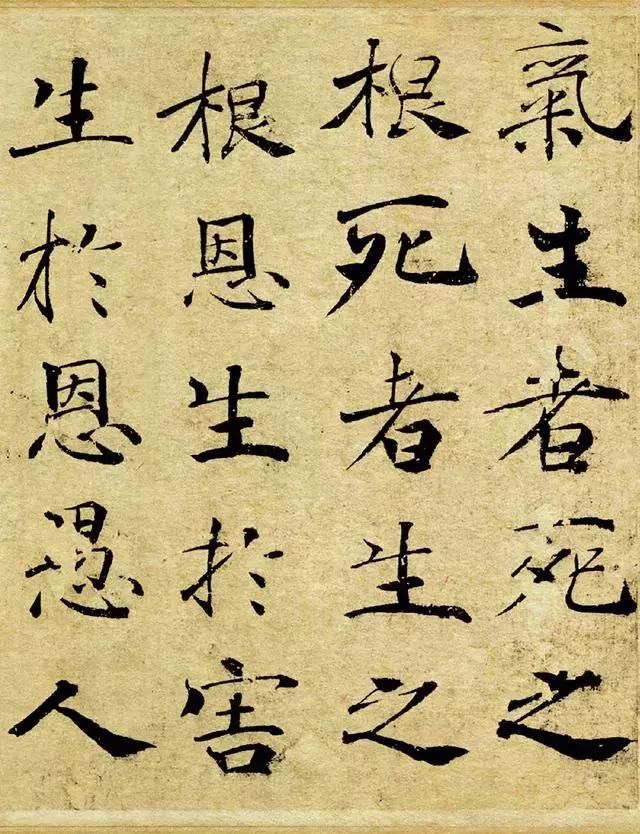 氣生者死之
根死者生之
根恩生於害
生於恩愚人